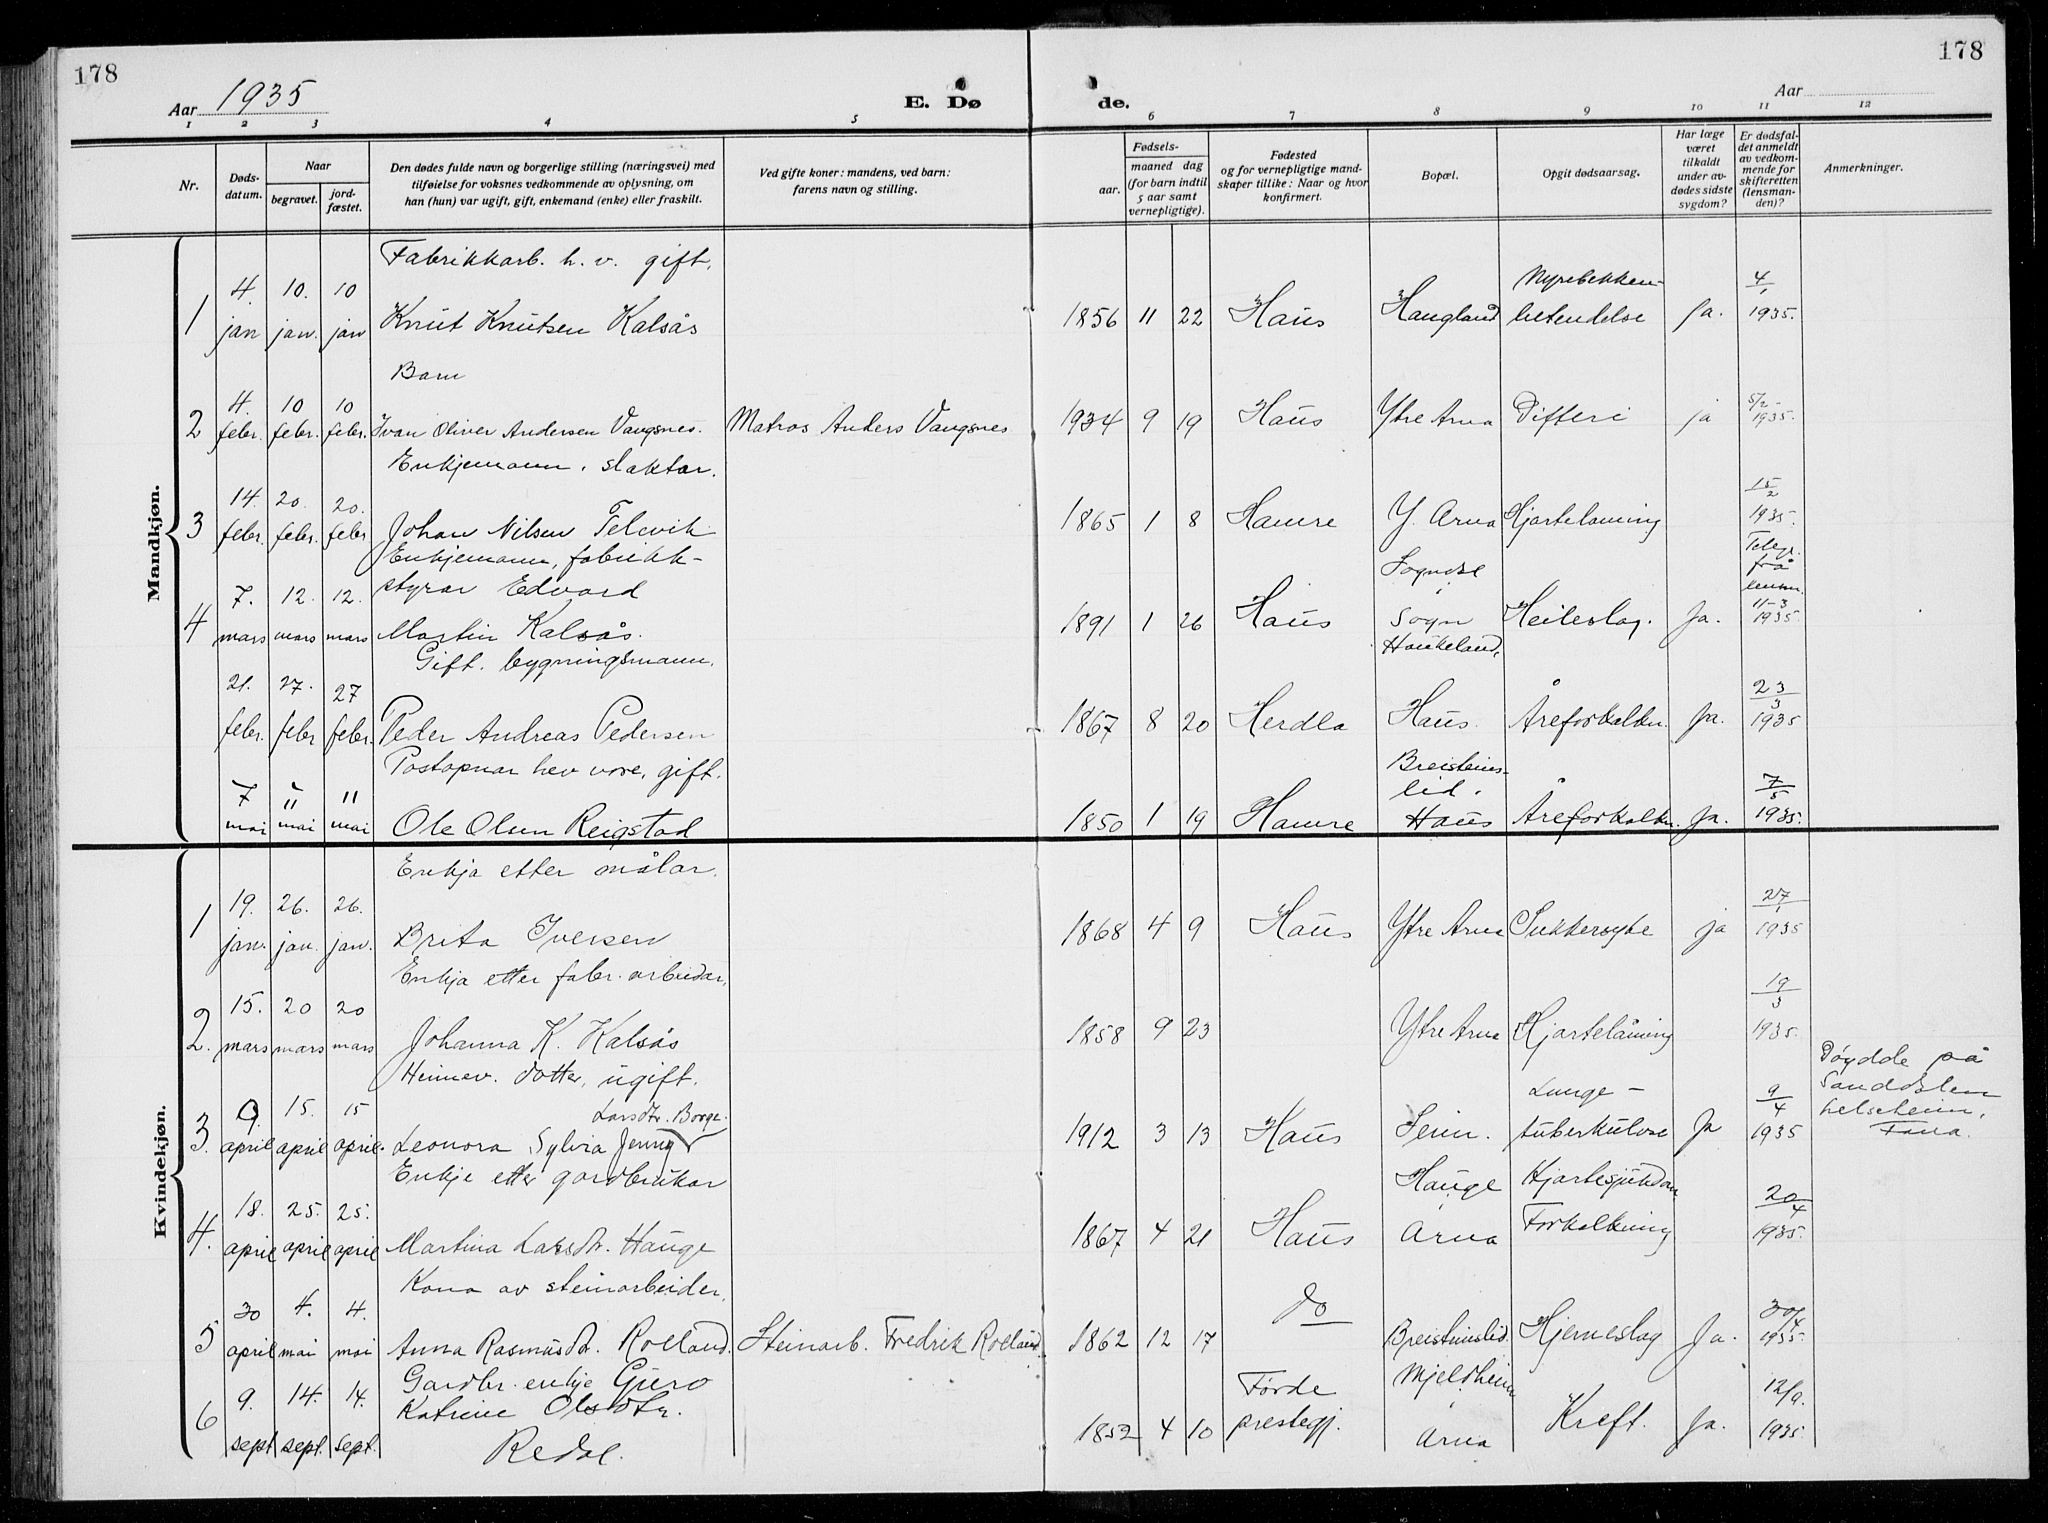 178
178
Aar 1935
E. Dø
de.
Aar
1 2 3 4 5 6 7 8 9 10 11 12
Nr.
Dødsdatum.
Naar
begravet.
jordfæstet.
Den dødes fulde navn og borgerlige stilling (næringsvei) med
tilføielse for voksnes vedkommende av oplysning, om
han (hun) var ugift, gift, enkemand (enke) eller fraskilt.
Ved gifte koner: mandens, ved barn:
farens navn og stilling.
Fødsels-
aar.
maaned dag
(for barn indtil
5 aar samt
vernepligtige).
Fødested
og for vernepligtige mandskaper tillike: Naar og hvor
konfirmert.
Bopæl.
Opgit dødsaarsag.
Har læge
været
tilkaldt
under avdødes sidste
sygdom?
Er dødsfaldet anmeldt
av vedkommende for
skifteretten
(lensmanden)?
Anmerkninger.
Mandkjøn.
Fabrikkarb. h. v. gift.
1 4. jan 10. jan. 10 jan Knut Knutsen Kalsås 1856 11 22 Haus Haugland Nyrebekkenbetendelse Ja. 4/1 1935.
Barn
2 4. febr. 10 febr. 10 febr. Ivan Oliver Andersen Vangsnes. Matros Anders Vangsnes 1934 9 19 Haus Ytre Arna Difteri ja 5/2- 1935.
Enkjemann, slaktar.
3 14. febr. 20. febr. 20. febr Johan Nilsen Televik 1865 1 8 Hamre Y. Arna Hjartelaming 15/2 1935.
Enkjemann, fabrikk-
styrar Edvard
4 7. mars 12. mars 12. mars Martin Kalsås. 1891 1 26 Haus Sogndal i Sogn Heileslag. Ja. Telegr. frå 11-3 1935
Gift. bygningsmann.
21. febr. 27. febr 27 febr. Peder Andreas Pedersen 1867 8 20 Herdla Haukeland, Haus. Åreforkalkn. Ja. 23/3 1935
Postopnar hev vore, gift.
7 mai 11 mai 11 mai Ole Olsen Reigstad 1850 1 19 Hamre Breisteinslid. Haus Åreforkalkn. Ja. 7/5 1935.
Kvindekjøn.
Enkja etter målar.
1 19. jan. 26. jan. 26. jan. Brita Iversen 1868 4 9 Haus Ytre Arna Sukkersyke ja 27/1 1935
Enkja etter fabr. arbeidar,
2. 15. mars 20 mars 20 mars Johanna K. Kalsås 1858 9 23 Ytre Arna Hjartelåming 19/3 1935.
Heimev. dotter, ugift.
Larsdtr. Borge.
3. 9. april 15. april 15 april. Leonora Sylvia Jenny 1912 3 13 Haus Seim. Lunge-tuberkulose Ja 9/4 1935 Døydde på
helseheim,
Fana.
Enkje etter gardbrukar
4. 18. april 25. april 25. april Martina Larsdtr. Hauge 1867 4 21 Haus Hauge Arna Hjartesjukdom Forkalkning 20/4 1935.
Kona av steinarbeider.
5 30 april 4. mai 4. mai Anna Rasmusdtr. Rolland. Steinarb. Fredrik Rolland 1862 12 17 do Breisteinslid. Hjerneslag Ja. 30/4 1935.
Gardbr. enkje Guro
6 9. sept 14. sept. 14. sept. Katrine Olsdtr. 1852 4 10 Førde prestegj. Mjeldheim Arna Kreft. Ja. 12/9. 1935.
Redal.